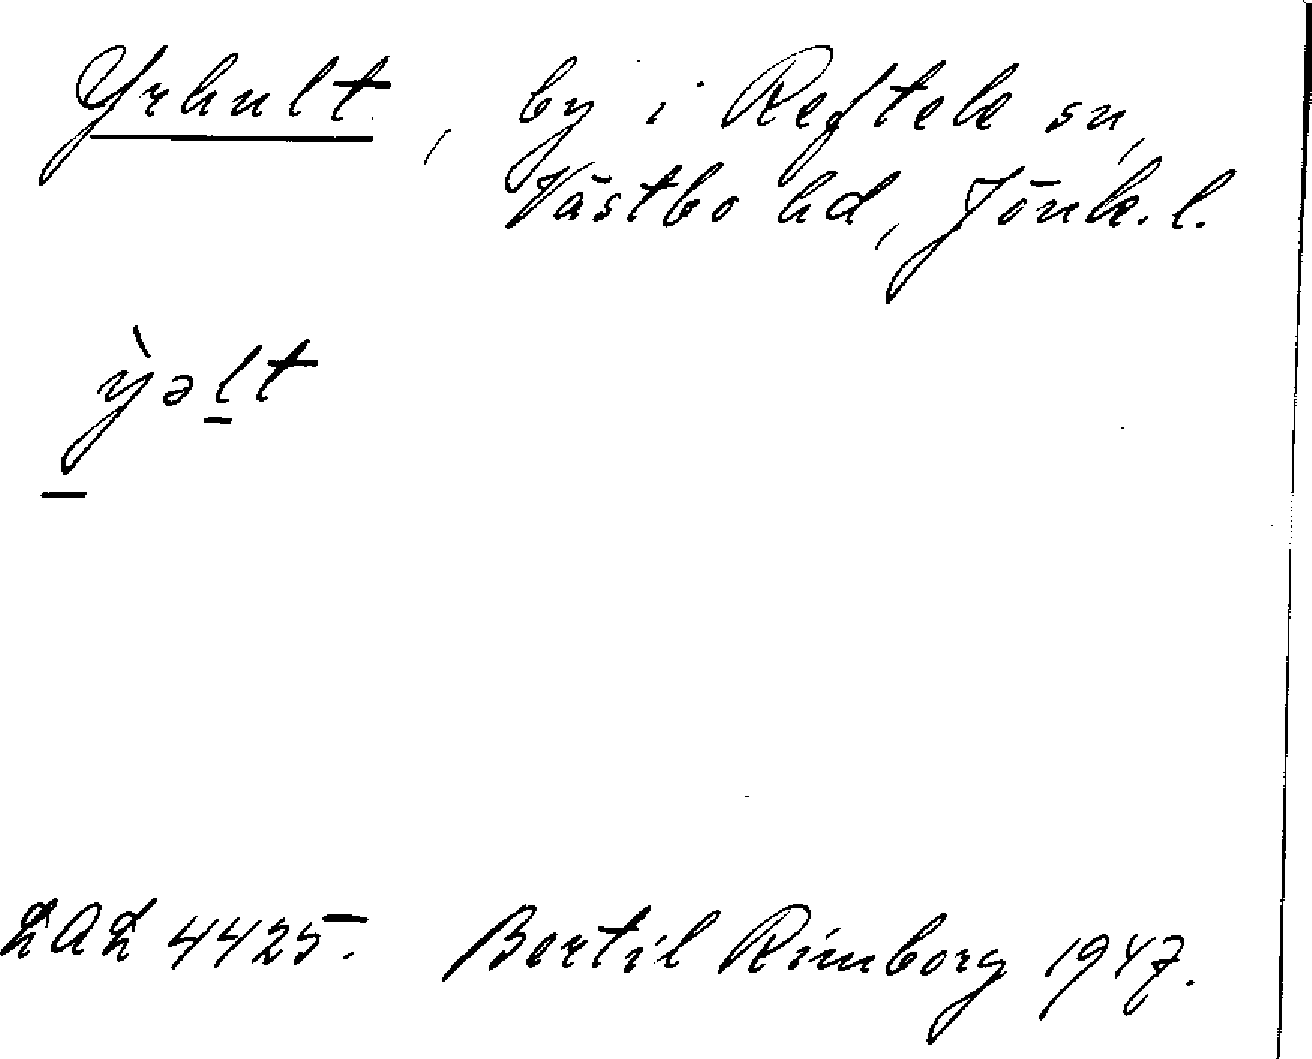 Yrhult, by i Reftele sn,
Västbo hd, Jönk. l.
ỳəlt
LAL 4425. Bertil Rimborg 1947.